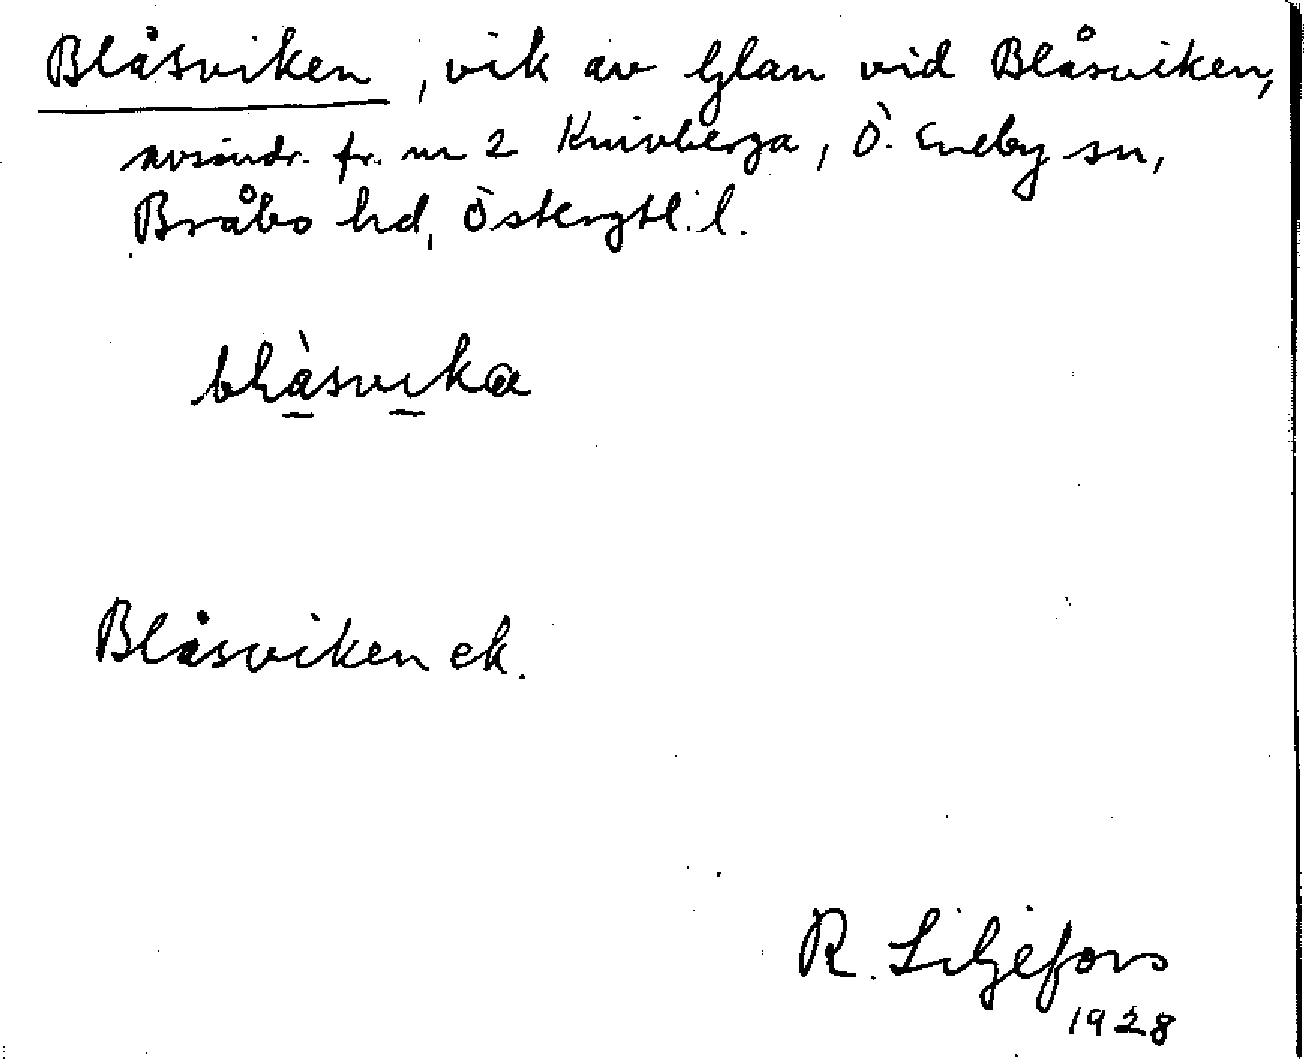 Blåsviken, vik av Glan vid Blåsviken,
avsöndr. fr. nr 2 Knivberga, Ö. Eneby sn,
Bråbo hd, Östergtl. l.
blàsvika
Blåsviken ek.
R. Liljefors
1928